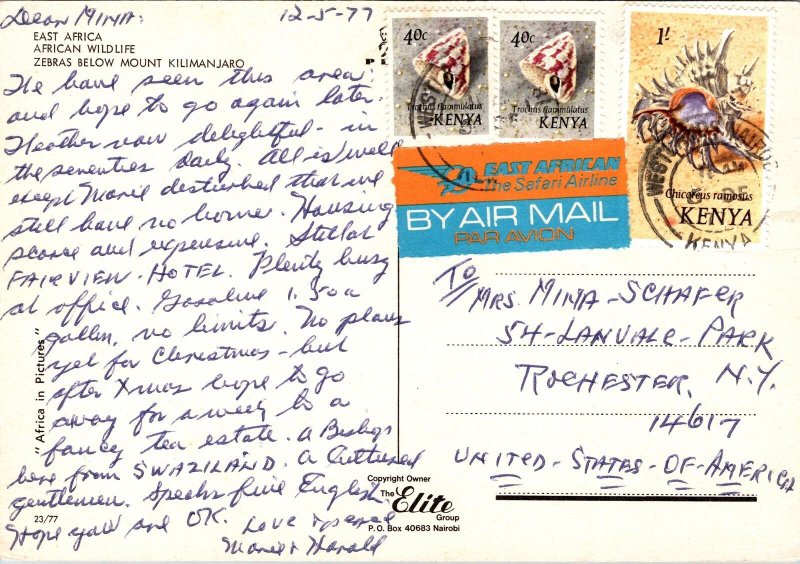 Dear Minta: 12-5-77
EAST AFRICA
AFRICAN WILDLIFE
ZEBRAS BELOW MOUNT KILIMANJARO
We have seen this area
and hope to go again later.
Weather now delightful - in
the seventies daily. All is well
except Marie disturbed that we
still have no home. Housing
scarce and expensive. Still at
FAIRVIEW - HOTEL. Plenty busy
at office. Gasoline 1.50 a
gallon, no limits. No plans
yet for Christmas - but
after Xmas hope to go
away for a week to a
fancy tea estate. A Bishop
here from SWAZILAND. A Cultured
gentlemen. Speaks fine English.
Hope you all are OK.
Love & peace
Marie & Harold
"Africa in Pictures"
23/77
40c
Trochus flammulatus
KENYA
40c
Trochus flammulatus
KENYA
1/-
Chicoreus ramosus
KENYA
WESTL
NAIROBI
KENYA
EAST AFRICAN
The Safari Airline
BY AIR MAIL
PAR AVION
To
MRS. MINTA - SCHAFER
54 - LANVALE - PARK
ROCHESTER, N.Y.
14617
UNITED - STATES - OF - AMERICA
Copyright Owner
The Elite Group
P.O. Box 40683 Nairobi